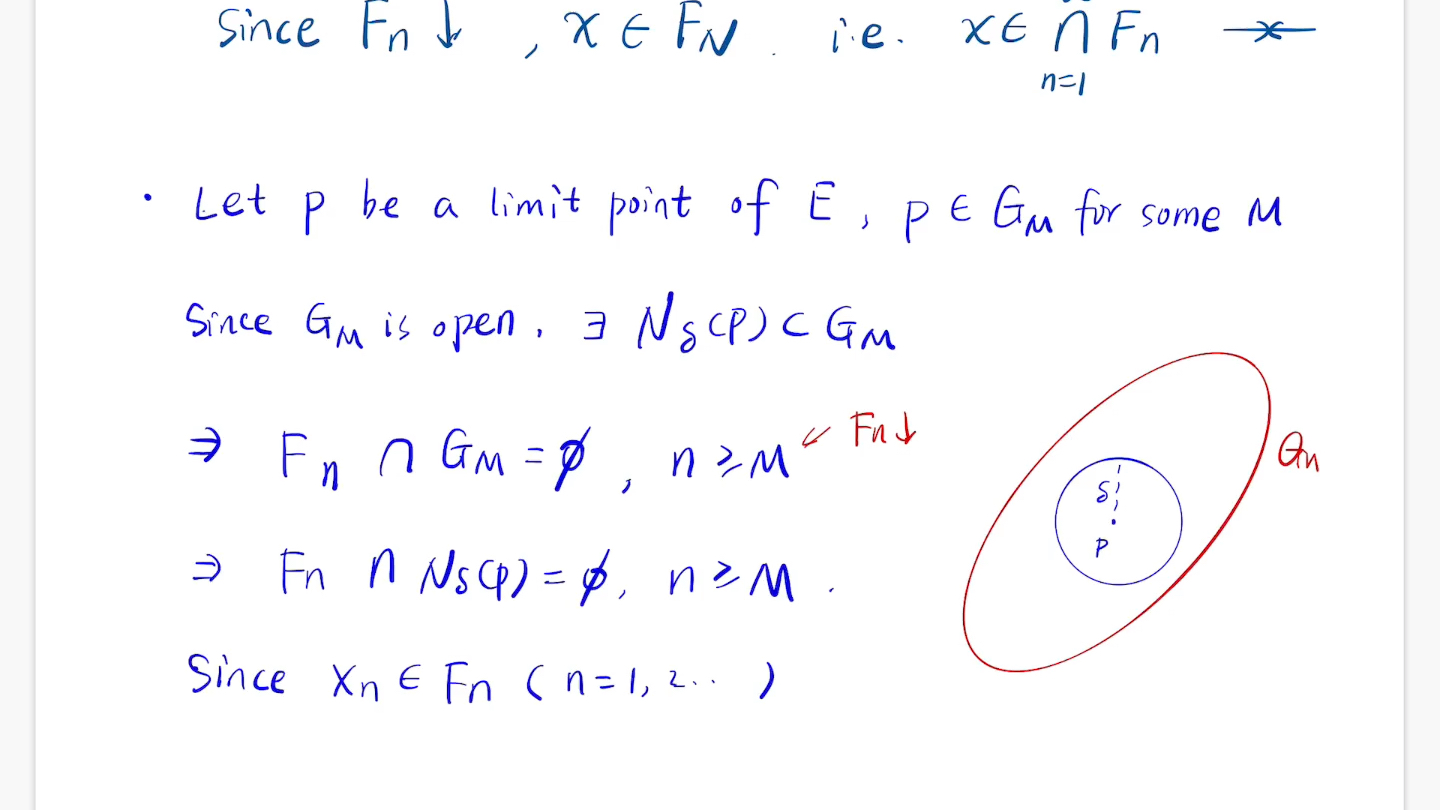 Since Fn ↓ , x ∈ FN . i.e. x ∈ ∩ Fn
n=1
• Let p be a limit point of E , p ∈ GM for some M
Since GM is open . ∃ Nδ(p) ⊂ GM
⇒ Fn ∩ GM = ∅ , n ≥ M ↙ Fn↓
Gn
δ
p
⇒ Fn ∩ Nδ(p) = ∅ , n ≥ M .
Since xn ∈ Fn ( n = 1, 2 .. )